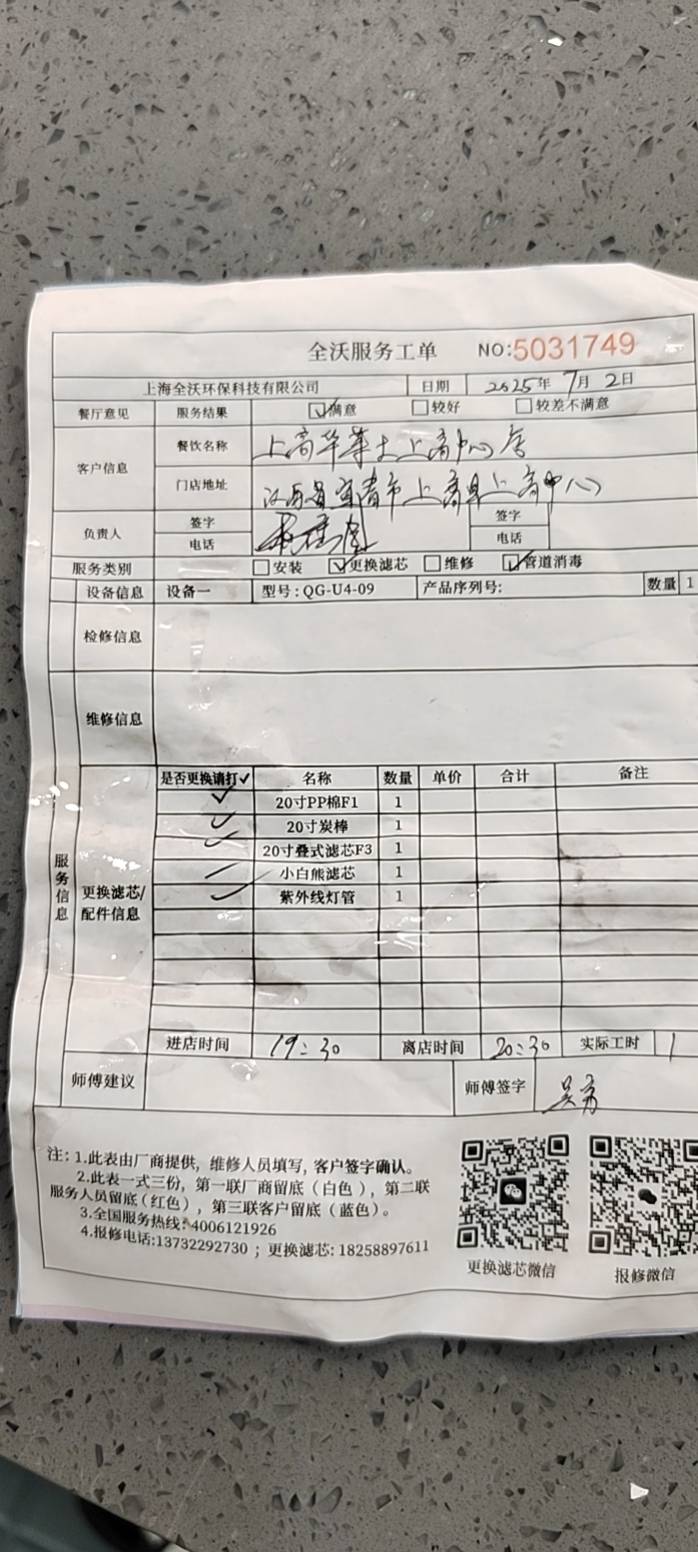 全沃服务工单 NO:5031749
上海全沃环保科技有限公司 日期 2025年7月2日
餐厅意见 服务结果 满意 较好 较差不满意
客户信息 餐饮名称 上高华莱士上高中心店
门店地址 江西省宜春市上高县上高中心
负责人 签字 签字
电话 电话
服务类别 安装 更换滤芯 维修 管道消毒
设备信息 设备一 型号:QG-U4-09 产品序列号: 数量 1
检修信息
维修信息
服务信息
更换滤芯/配件信息
是否更换请打✓ 名称 数量 单价 合计 备注
✓ 20寸PP棉F1 1
✓ 20寸炭棒 1
✓ 20寸叠式滤芯F3 1
小白熊滤芯 1
✓ 紫外线灯管 1
进店时间 19:30 离店时间 20:30 实际工时 1
师傅建议 师傅签字
注: 1.此表由厂商提供, 维修人员填写, 客户签字确认。
2.此表一式三份, 第一联厂商留底(白色), 第二联
服务人员留底(红色), 第三联客户留底(蓝色)。
3.全国服务热线: 4006121926
4.报修电话:13732292730 ; 更换滤芯: 18258897611
更换滤芯微信 报修微信